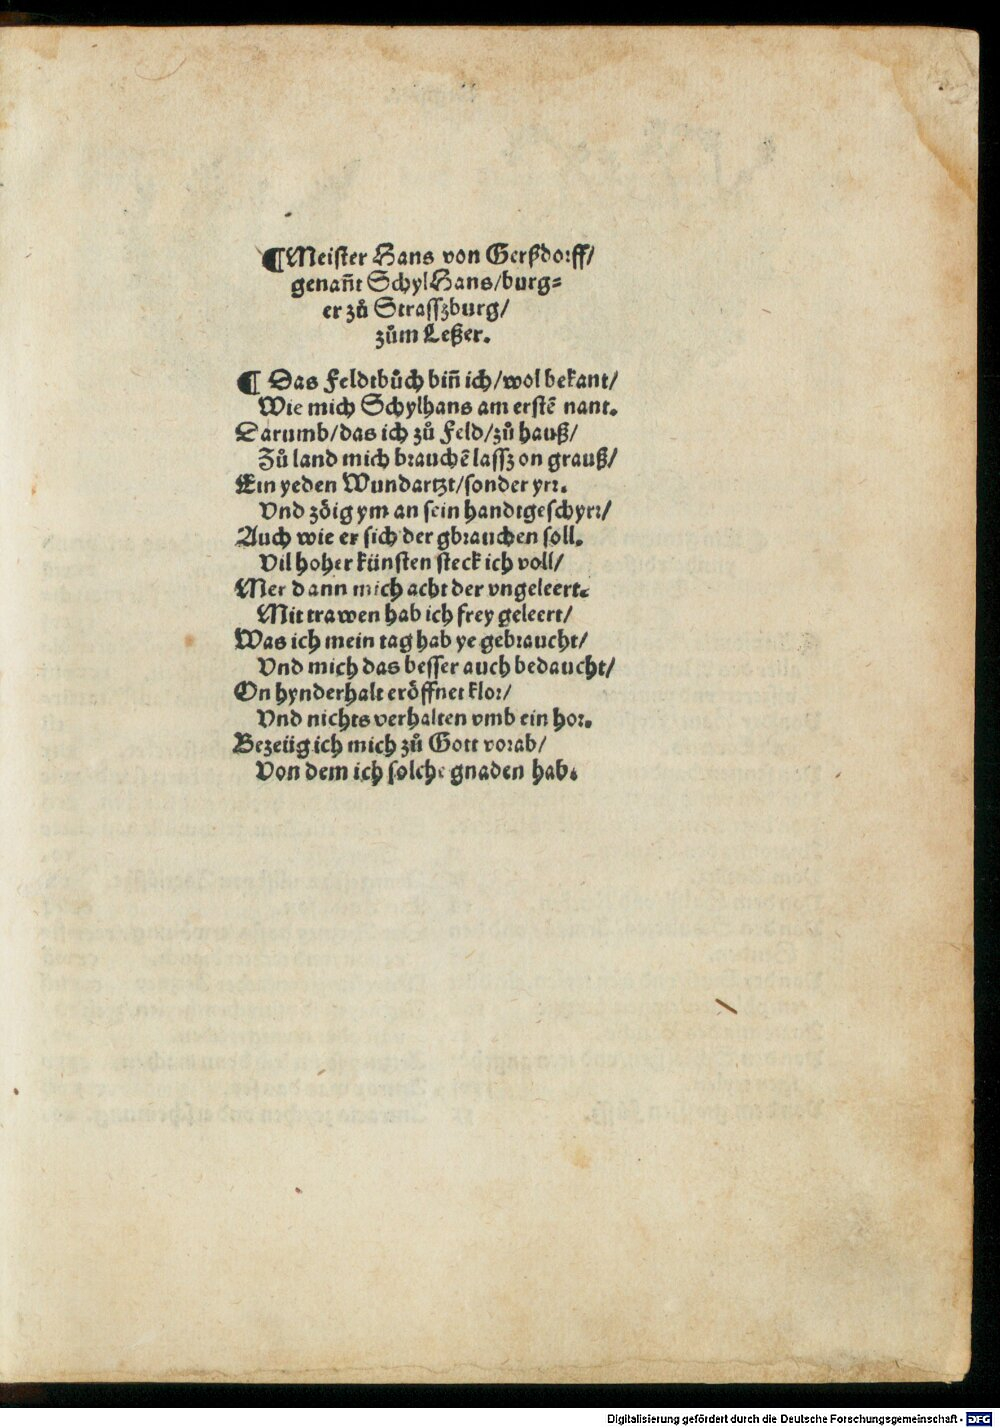 ¶Meister Hans von Gerßdorff/
genañt SchylHans/burg⸗
er zů Strassʒburg/
zům Leßer.
¶ Das Feldtbůch biñ ich/wol bekant/
Wie mich Schylhans am erstẽ nant.
Darumb/das ich zů Feld/zů hauß/
Zů land mich brauchẽ lassʒ on grauß/
Ein yeden Wundartzt/sonder yrr.
Vnd zöig ym an sein handtgeschyrr/
Auch wie er sich der gbrauchen soll.
Vil hoher künsten steck ich voll/
Mer dann mich acht der vngeleert.
Mit trawen hab ich frey geleert/
Was ich mein tag hab ye gebraucht/
Vnd mich das besser auch bedaucht/
On hynderhalt eröffnet klor/
Vnd nichts verhalten vmb ein hor.
Bezeüg ich mich zů Gott vorab/
Von dem ich solche gnaden hab.
Digitalisierung gefördert durch die Deutsche Forschungsgemeinschaft - DFG